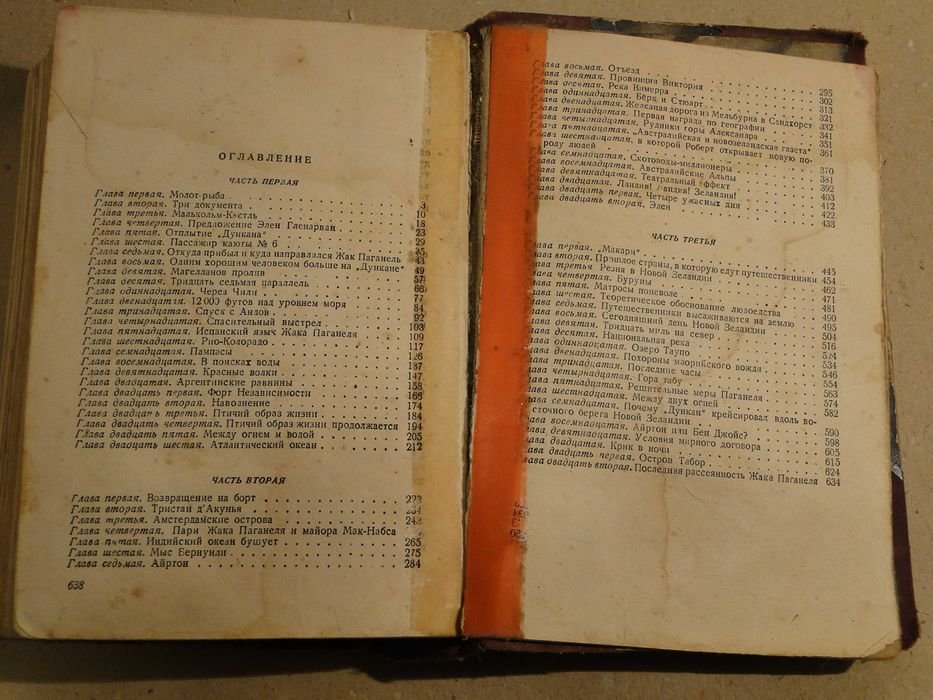 ОГЛАВЛЕНИЕ
ЧАСТЬ ПЕРВАЯ
Глава первая. Молот-рыба 3
Глава вторая. Три документа 10
Глава третья. Малькольм-Кэстль 18
Глава четвертая. Предложение Элен Гленарван 23
Глава пятая. Отплытие „Дункана" 29
Глава шестая. Пассажир каюты № 6 35
Глава седьмая. Откуда прибыл и куда направлялся Жак Паганель 43
Глава восьмая. Одним хорошим человеком больше на „Дункане" 49
Глава девятая. Магелланов пролив 57
Глава десятая. Тридцать седьмая параллель 66
Глава одиннадцатая. Через Чили 77
Глава двенадцатая. 12 000 футов над уровнем моря 84
Глава тринадцатая. Спуск с Андов 92
Глава четырнадцатая. Спасительный выстрел 103
Глава пятнадцатая. Испанский язык Жака Паганеля 109
Глава шестнадцатая. Рио-Колорадо 117
Глава семнадцатая. Пампасы 126
Глава восемнадцатая. В поисках воды 137
Глава девятнадцатая. Красные волки 147
Глава двадцатая. Аргентинские равнины 158
Глава двадцать первая. Форт Независимости 166
Глава двадцать вторая. Наводнение 174
Глава двадцать третья. Птичий образ жизни 184
Глава двадцать четвертая. Птичий образ жизни продолжается 194
Глава двадцать пятая. Между огнем и водой 205
Глава двадцать шестая. Атлантический океан 212
ЧАСТЬ ВТОРАЯ
Глава первая. Возвращение на борт 223
Глава вторая. Тристан д'Акунья
Глава третья. Амстердамские острова 243
Глава четвертая. Пари Жака Паганеля и майора Мак-Набса
Глава пятая. Индийский океан бушует 265
Глава шестая. Мыс Бернуили 275
Глава седьмая. Айртон 284
638
Глава восьмая. Отъезд 295
Глава девятая. Провинция Виктория 302
Глава десятая. Река Вимерра 313
Глава одиннадцатая. Бёрк и Стюарт 321
Глава двенадцатая. Железная дорога из Мельбурна в Сэндхорст 332
Глава тринадцатая. Первая награда по географии 341
Глава четырнадцатая. Рудники горы Александра 351
Глава пятнадцатая. „Австралийская и новозеландская газета" 361
Глава шестнадцатая, в которой Роберт открывает новую по-
роду людей 370
Глава семнадцатая. Скотоводы-миллионеры 381
Глава восемнадцатая. Австралийские Альпы 392
Глава девятнадцатая. Театральный эффект 403
Глава двадцатая. Ландия! Ландия! Зеландия! 412
Глава двадцать первая. Четыре ужасных дня 422
Глава двадцать вторая. Элен 433
ЧАСТЬ ТРЕТЬЯ
Глава первая. „Макари" 445
Глава вторая. Прошлое страны, в которую едут путешественники 454
Глава третья Резня в Новой Зеландии 462
Глава четвертая. Буруны 471
Глава пятая. Матросы поневоле 481
Глава шестая. Теоретическое обоснование людоедства 490
Глава седьмая. Путешественники высаживаются на землю 495
Глава восьмая. Сегодняшний день Новой Зеландии 504
Глава девятая. Тридцать миль на север 516
Глава десятая. Национальная река 524
Глава одиннадцатая. Озеро Таупо 534
Глава двенадцатая. Похороны маорийского вождя 546
Глава тринадцатая. Последние часы 554
Глава четырнадцатая. Гора табу 563
Глава пятнадцатая. Решительные меры Паганеля 574
Глава шестнадцатая. Между двух огней 582
Глава семнадцатая. Почему „Дункан" крейсировал вдоль во-
сточного берега Новой Зеландии 590
Глава восемнадцатая. Айртон или Бен Джойс? 598
Глава девятнадцатая. Условия мирного договора 605
Глава двадцатая. Крик в ночи 615
Глава двадцать первая. Остров Табор 624
Глава двадцать вторая. Последняя рассеянность Жака Паганеля 634